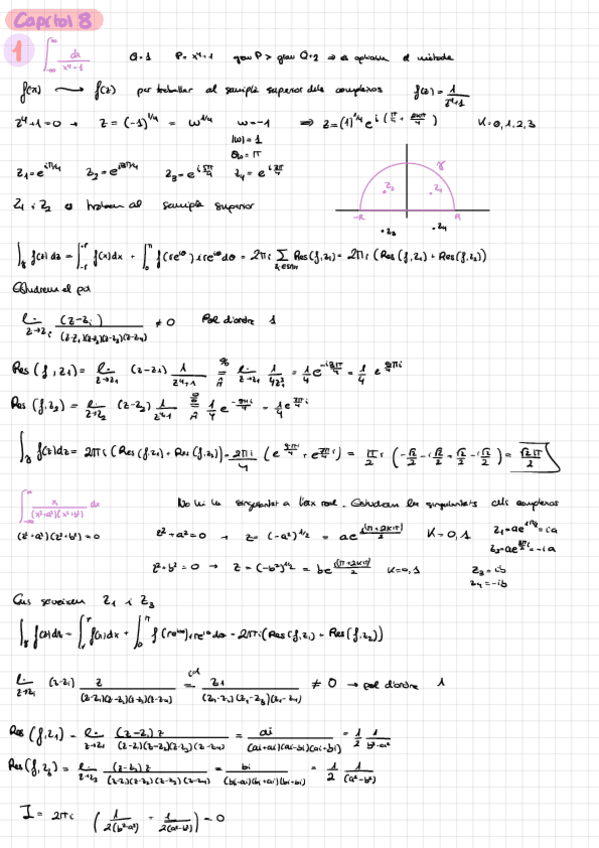 Capítol 8
1 ∫_{-∞}^{∞} dx/(x⁴+1) Q=1 P=x⁴+1 grau P > grau Q+2 ⇒ aplicarem el mètode
f(x) ⟶ f(z) per treballar al semiplà superior dels complexos f(z)=1/(z⁴+1)
z⁴+1=0 → z=(-1)^{1/4} = w^{1/4} w=-1 ⇒ z=(1)^{1/4} e^{i(π/4+2kπ/4)} K=0,1,2,3
|w|=1
θ_w=π
z₁=e^{iπ/4} z₂=e^{i3π/4} z₃=e^{i5π/4} z₄=e^{i7π/4}
z₁ i z₂ es troben al semiplà superior
γ
z₂ z₁
-R R
z₃ z₄
∫_γ f(z)dz = ∫_{-r}^{r} f(x)dx + ∫_0^π f(re^{iθ}) i re^{iθ} dθ = 2πi Σ Res(f,z_i) = 2πi (Res(f,z₁)+Res(f,z₂))
Estudiem el pol
lim_{z→z_i} (z-z_i)/((z-z₁)(z-z₂)(z-z₃)(z-z₄)) ≠ 0 Pol d'ordre 1
Res(f,z₁) = lim_{z→z₁} (z-z₁) 1/(z⁴+1) = lim_{z→z₁} 1/(4z³) = 1/4 e^{-i3π/4} = 1/4
Res(f,z₂) = lim_{z→z₂} (z-z₂) 1/(z⁴+1) = 1/4
∫_γ f(z)dz = 2πi (Res(f,z₁)+Res(f,z₂)) = 2πi/4 = πi/2 (-√2/2 - i√2/2 + √2/2 - i√2/2) = √2π/2
∫_{-∞}^{∞} x/((x²+a²)(x²+b²)) dx No hi ha singularitat a l'eix real. Estudiem les singularitats als complexos
(z²+a²)(z²+b²)=0 z²+a²=0 → z=(-a²)^{1/2} = ae^{i(π+2kπ)/2} K=0,1 z₁=ae^{iπ/2}=ia
z₂=ae^{i3π/2}=-ia
z²+b²=0 → z=(-b²)^{1/2} = be^{i(π+2kπ)/2} K=0,1 z₃=ib
z₄=-ib
Ens serveixen z₁ i z₃
∫_γ f(z)dz = ∫_{-r}^{r} f(x)dx + ∫_0^π f(re^{iθ}) i re^{iθ} dθ = 2πi (Res(f,z₁)+Res(f,z₃))
lim_{z→z_i} (z-z_i) z/((z-z₁)(z-z₂)(z-z₃)(z-z₄)) = z₁/((z₁-z₂)(z₁-z₃)(z₁-z₄)) ≠ 0 → pol d'ordre 1
Res(f,z₁) = lim_{z→z₁} (z-z₁)z/((z-z₁)(z-z₂)(z-z₃)(z-z₄)) = ai/((ai+ai)(ai-bi)(ai+bi)) = 1/2 1/(b²-a²)
Res(f,z₃) = lim_{z→z₃} (z-z₃)z/((z-z₁)(z-z₂)(z-z₃)(z-z₄)) = bi/((bi-ai)(bi+ai)(bi+bi)) = 1/2 1/(a²-b²)
I = 2πi (1/(2(b²-a²)) + 1/(2(a²-b²))) = 0